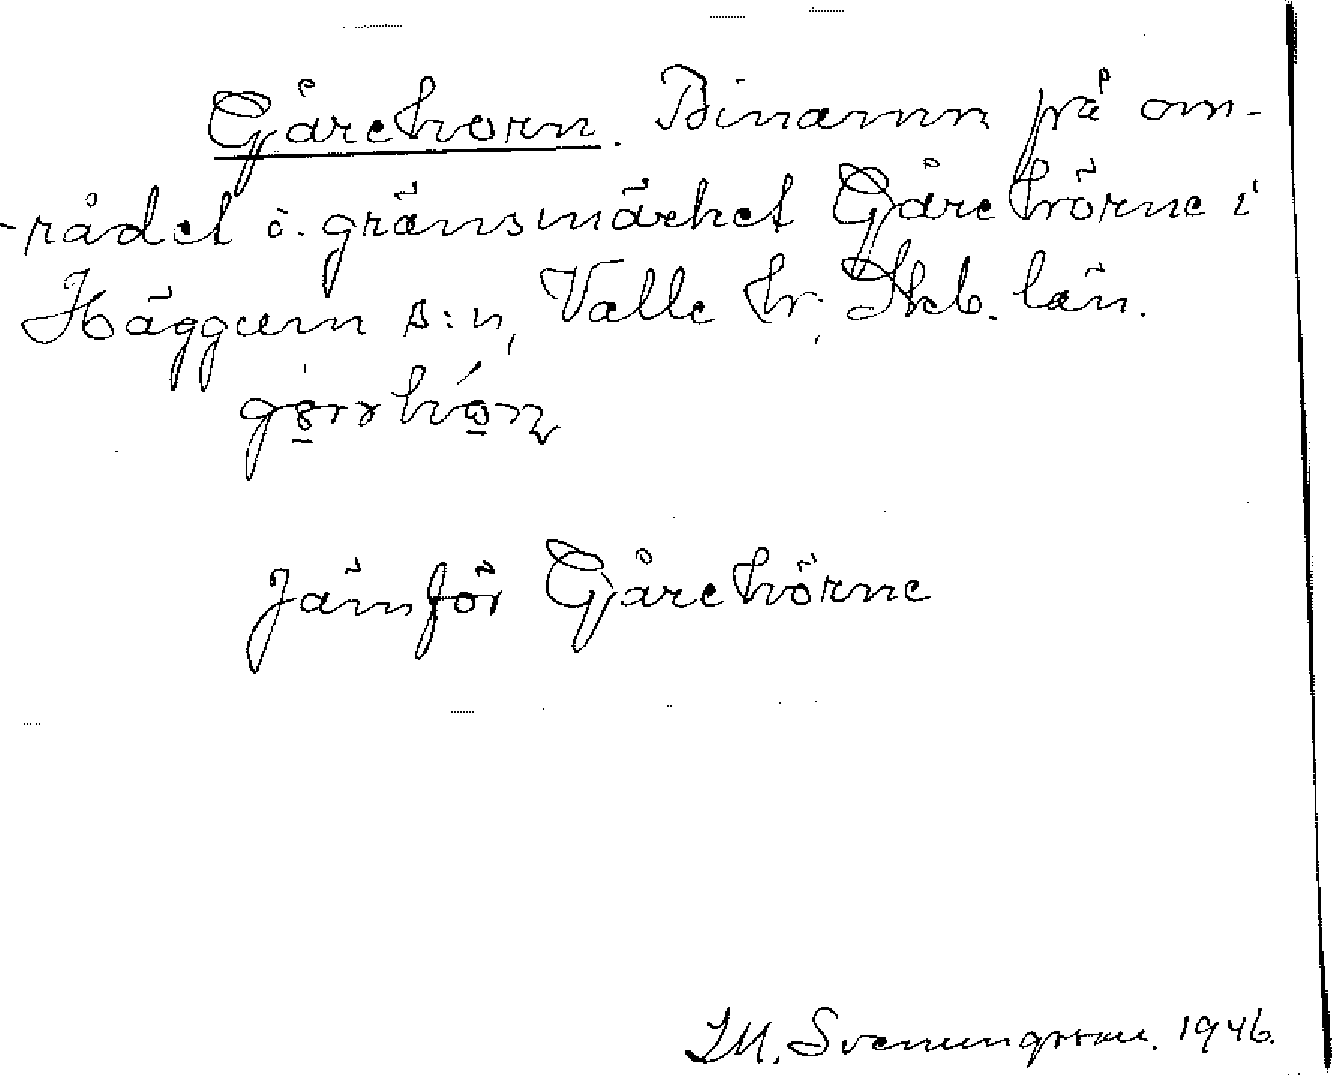 Gårehorn. Binamn på om-
-rådet o. gränsmärket Gårehörne i
Häggum s:n, Valle hr, Skb. län.
Jämför Gårehörne
M. Svenungsson. 1946.